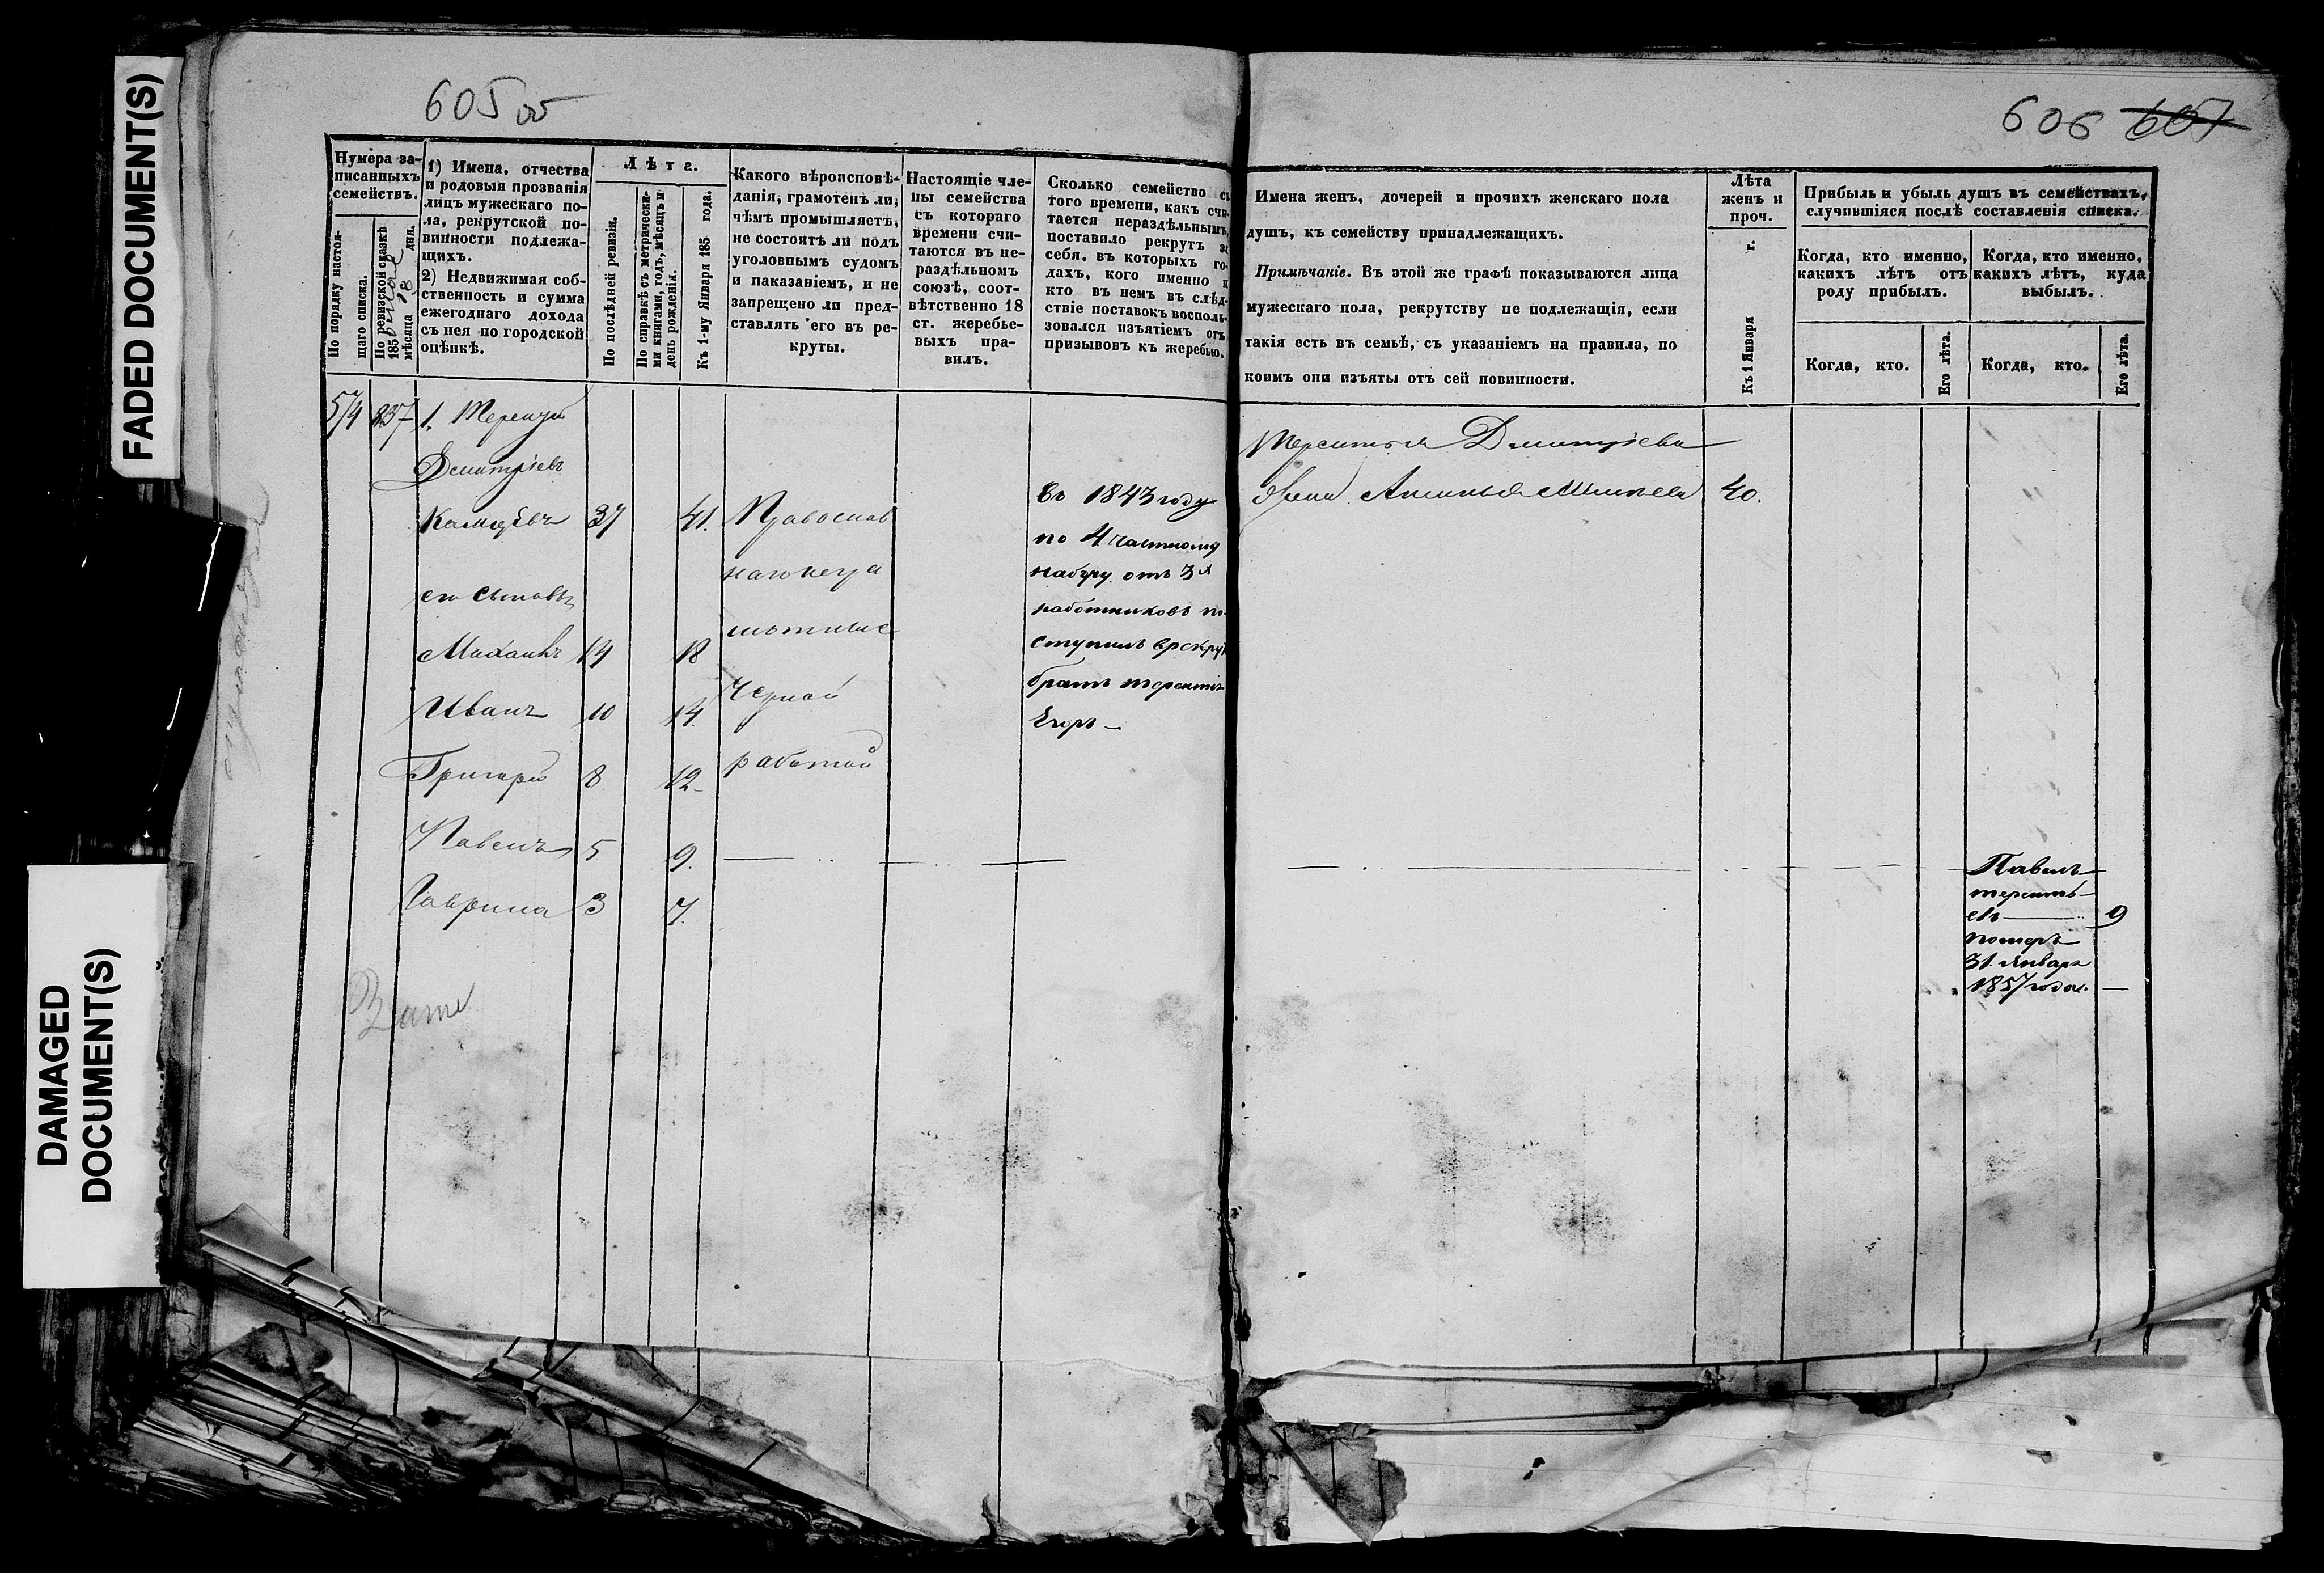 FADED DOCUMENT(S)
DAMAGED
DOCUMENT(S)
605 об
Нумера за-
писанныхъ
семействъ.
По порядку настоя-
щаго списка.
По ревизской сказкѣ
185
мѣсяца 18 дня.
1) Имена, отчества
и родовыя прозванія
лицъ мужескаго по-
ла, рекрутской по-
винности подлежа-
щихъ.
2) Недвижимая соб-
ственность и сумма
ежегоднаго дохода
съ нея по городской
оцѣнкѣ.
Лѣта.
По послѣдней ревизіи.
По справкѣ съ метрически-
ми книгами, годъ, мѣсяцъ и
день рожденія.
Къ 1-му Января 185 года.
Какого вѣроисповѣ-
данія, грамотенъ ли,
чѣмъ промышляетъ,
не состоитъ ли подъ
уголовнымъ судомъ
и наказаніемъ, и не
запрещено ли пред-
ставлять его въ ре-
круты.
Настоящіе чле-
ны семейства
съ котораго
времени счи-
таются въ не-
раздѣльномъ
союзѣ, соот-
вѣтственно 18
ст. жеребье-
выхъ пра-
вилъ.
Сколько семейство съ
того времени, какъ счи-
тается нераздѣльнымъ,
поставило рекрутъ за
себя, въ которыхъ го-
дахъ, кого именно и
кто въ немъ въ слѣд-
ствіе поставокъ восполь-
зовался изъятіемъ отъ
призывовъ къ жеребью.
574 237 1. Терентий
Дмитріевъ
37 41. Православ
его сыновья
Михаилъ 14 18
Иванъ 10 14.
Григорій 8. 12
Павелъ 5 9.
Гаврила 3 7.
черной
работой
Въ 1843 году
по 4 частному
набору отъ 3х
работниковъ по-
ступилъ в рекруты
братъ терентія
Егоръ
606 607
Имена женъ, дочерей и прочихъ женскаго пола
душъ, къ семейству принадлежащихъ.
Примѣчаніе. Въ этой же графѣ показываются лица
мужескаго пола, рекрутству не подлежащія, если
такія есть въ семьѣ, съ указаніемъ на правила, по
коимъ они изъяты отъ сей повинности.
Лѣта
женъ и
проч.
Къ 1 Января г.
Прибыль и убыль душъ въ семействахъ,
случившіяся послѣ составленія списка.
Когда, кто именно,
какихъ лѣтъ отъ
роду прибылъ.
Когда, кто именно,
какихъ лѣтъ, куда
выбылъ.
Когда, кто.
Его лѣта.
Когда, кто.
Его лѣта.
Терентья Дмитріева
жена 40.
Павелъ
теренть-
евъ 9
померъ
31 Января
1857 года.